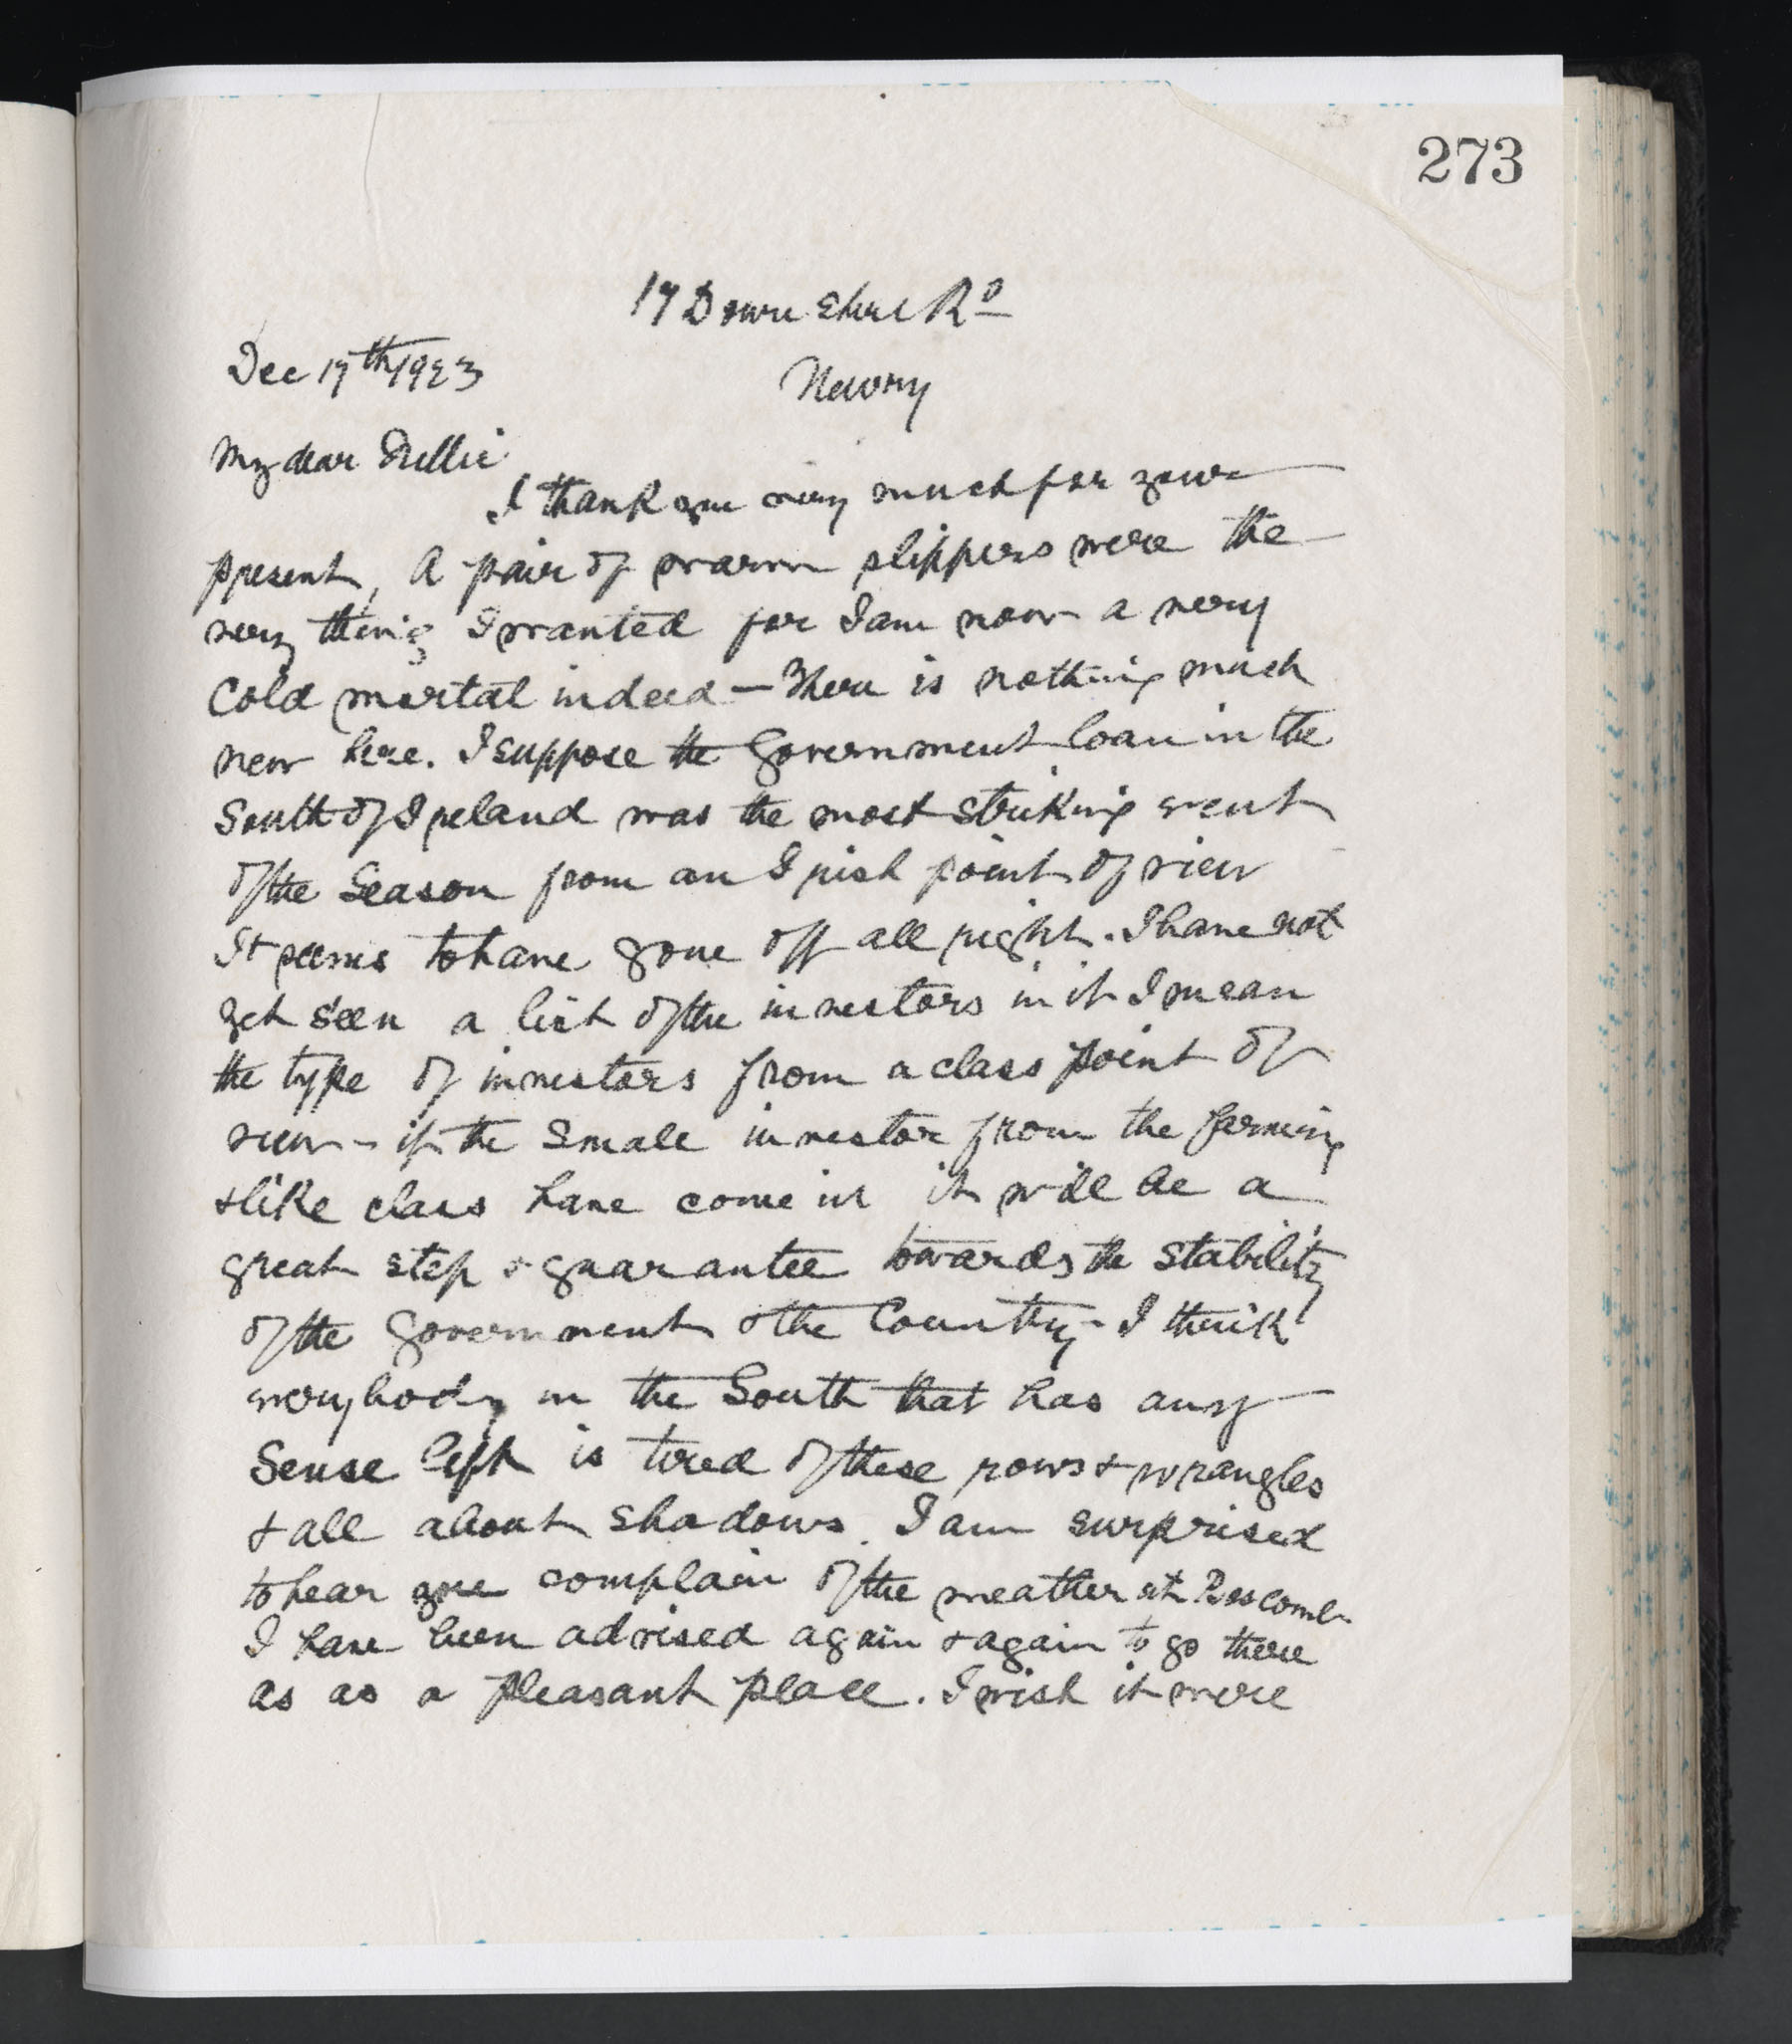 273
17 Downshire Rd
Dec 17th 1923
Newry
My dear Nellie
I thank you very much for your
present, A pair of warm slippers were the
very thing I wanted for I am now a very
Cold mortal indeed — There is nothing much
new here. I suppose the Government loan in the
South of Ireland was the most striking event
of the Season from an Irish point of view
It seems to have gone off all right. I have not
yet seen a list of the investors in it I mean
the type of investors from a class point of
view - if the Small investor from the farming
& like class have come in it will be a
great step & guarantee towards the stability
of the Government & the Country - I think
everybody in the South that has any
Sense left is tired of these rows & wrangles
& all about shadows. I am surprised
to hear you complain of the weather at Boscombe
I have been advised again & again to go there
as as a pleasant place. I wish it were